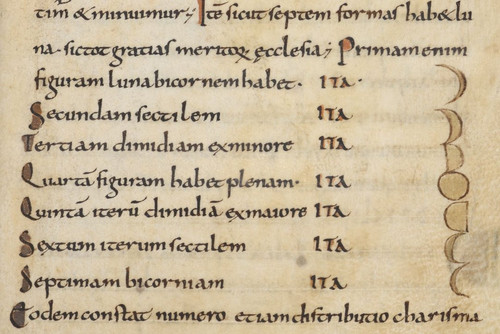 tim̄ & minuimur; Itē sicut septem formas hab& lu
na. sic tot gratias meritoꝝ ęcclesia; Primam enim
figuram luna bicornem habet. ITA.
Secundam sectilem ITA
Tertiam dimidiam ex minore ITA
Quartā figuram habet plenam. ITA
Quintā iterū dimidiā ex maiore ITA
Sextum iterum sectilem ITA
Septimam bicorniam ITA
Eodem constat numero etiam distributio charisma